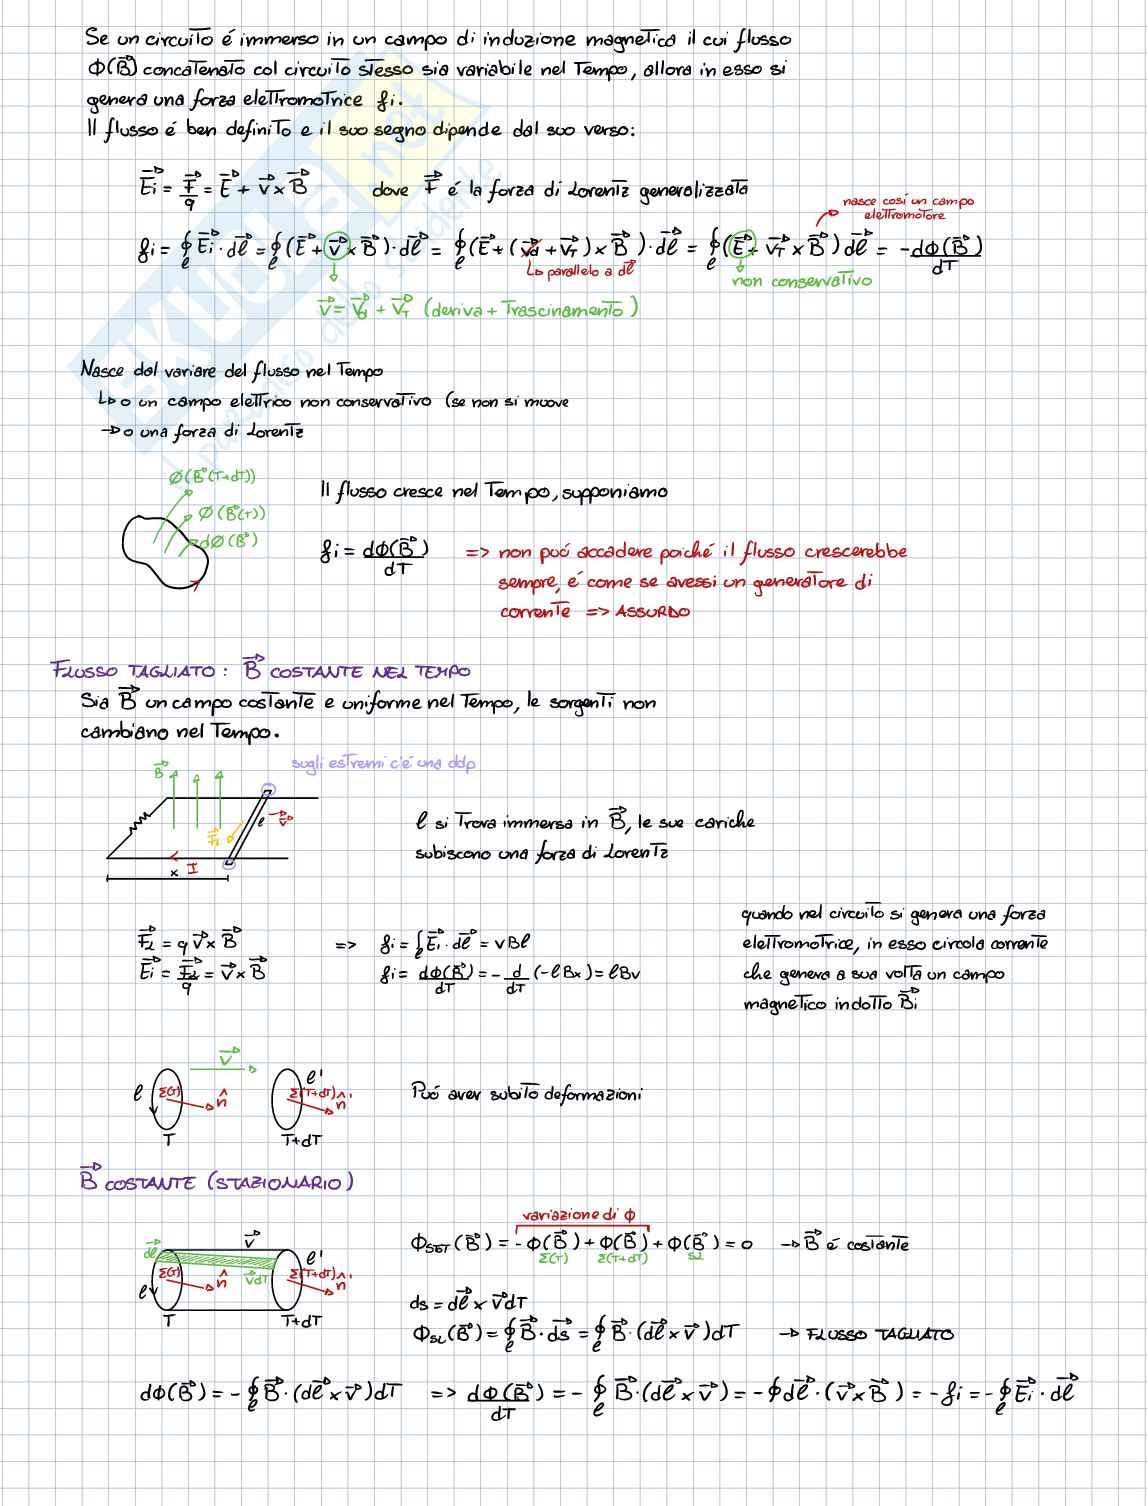 Se un circuito é immerso in un campo di induzione magnetica il cui flusso
Φ(B⃗) concatenato col circuito stesso sia variabile nel Tempo, allora in esso si
genera una forza elettromotrice fi.
Il flusso é ben definito e il suo segno dipende dal suo verso:
E⃗i = F⃗/q = E⃗ + v⃗ x B⃗ dove F⃗ é la forza di Lorentz generalizzata
nasce cosí un campo
elettromotore
fi = ∮ℓ E⃗i · dℓ⃗ = ∮ℓ (E⃗ + v⃗ x B⃗) · dℓ⃗ = ∮ℓ (E⃗ + (v⃗d + v⃗T) x B⃗) · dℓ⃗ = ∮ℓ (E⃗ + v⃗T x B⃗) dℓ⃗ = -dΦ(B⃗)/dT
↳ parallelo a dℓ⃗
non conservativo
v⃗ = v⃗d + v⃗T (deriva + Trascinamento)
Nasce dal variare del flusso nel Tempo
↳ o un campo elettrico non conservativo (se non si muove
→ o una forza di Lorentz
Ø(B⃗(T+dT))
Ø(B⃗(T))
dØ(B⃗)
Il flusso cresce nel Tempo, supponiamo
fi = dΦ(B⃗)/dT => non puó accadere poiché il flusso crescerebbe
sempre, é come se avessi un generatore di
corrente => ASSURDO
FLUSSO TAGLIATO: B⃗ COSTANTE NEL TEMPO
Sia B⃗ un campo costante e uniforme nel Tempo, le sorgenti non
cambiano nel Tempo.
sugli estremi c'é una ddp
B⃗
F⃗L
ℓ
v⃗
I
x
ℓ si Trova immersa in B⃗, le sue cariche
subiscono una forza di Lorentz
F⃗L = q v⃗ x B⃗ => fi = ∫ℓ E⃗i · dℓ⃗ = vBℓ
E⃗i = F⃗L/q = v⃗ x B⃗ fi = dΦ(B⃗)/dT = - d/dT (-ℓBx) = ℓBv
quando nel circuito si genera una forza
elettromotrice, in esso circola corrente
che genera a sua volta un campo
magnetico indotto B⃗i
v⃗
ℓ Σ(T) n̂ ℓ' Σ(T+dT) n̂'
T T+dT
Puó aver subito deformazioni
B⃗ COSTANTE (STAZIONARIO)
variazione di Φ
dℓ⃗ v⃗ ℓ'
ℓ Σ(T) n̂ v⃗dT Σ(T+dT) n̂'
T T+dT
ΦSET(B⃗) = - Φ(B⃗)Σ(T) + Φ(B⃗)Σ(T+dT) + Φ(B⃗)SL = 0 → B⃗ é costante
ds = dℓ⃗ x v⃗dT
ΦSL(B⃗) = ∮ℓ B⃗ · ds⃗ = ∮ℓ B⃗ · (dℓ⃗ x v⃗)dT → FLUSSO TAGLIATO
dΦ(B⃗) = - ∮ℓ B⃗ · (dℓ⃗ x v⃗)dT => dΦ(B⃗)/dT = - ∮ℓ B⃗ · (dℓ⃗ x v⃗) = - ∮dℓ⃗ · (v⃗ x B⃗) = - fi = - ∮ℓ E⃗i · dℓ⃗